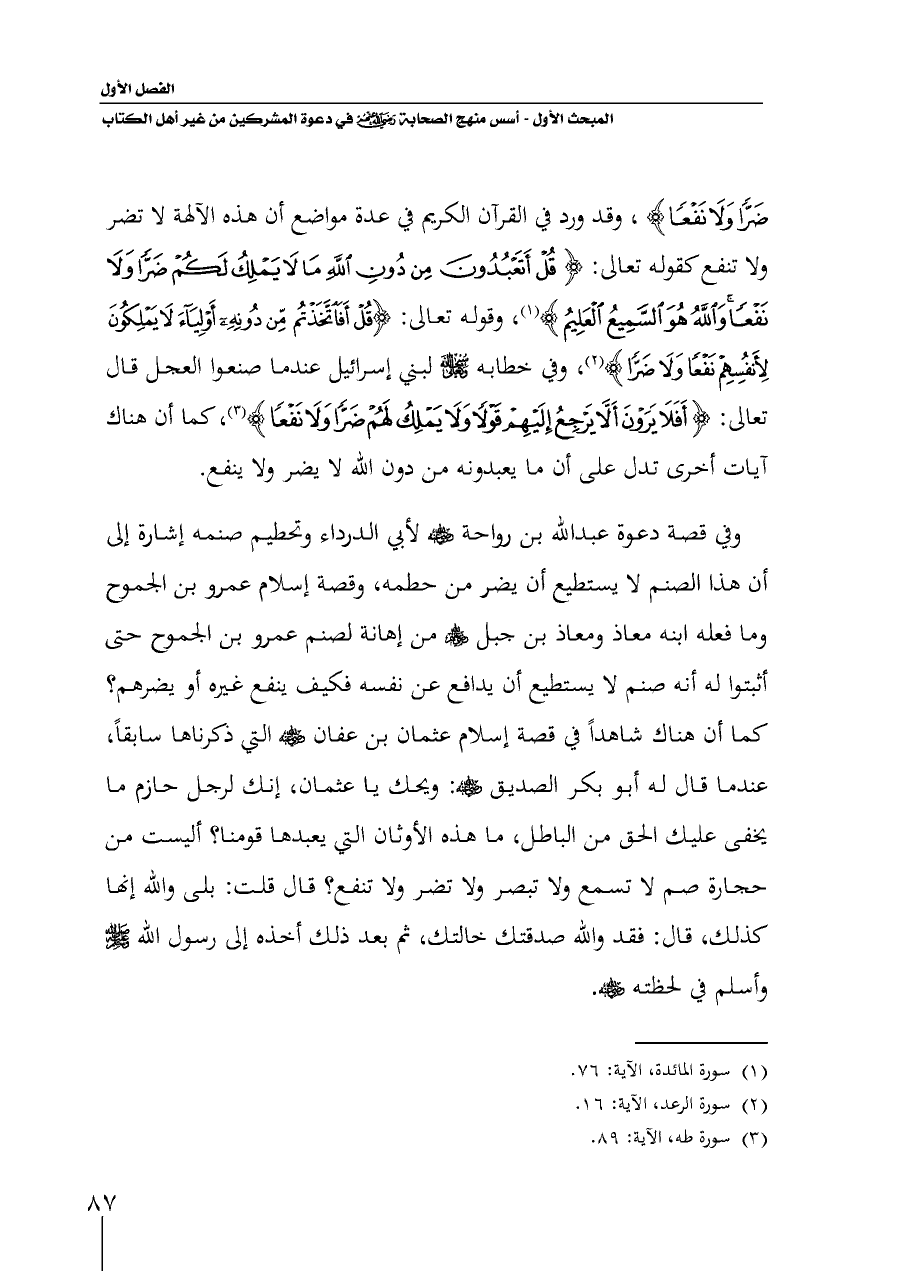 الفصل الأول
المبحث الأول - أسس منهج الصحابة رضي الله عنهم في دعوة المشركين من غير أهل الكتاب
ضَرًّا وَلَا نَفْعًا﴾ ، وقد ورد في القرآن الكريم في عدة مواضع أن هذه الآلهة لا تضر
ولا تنفع كقوله تعالى: ﴿قُلْ أَتَعْبُدُونَ مِن دُونِ ٱللَّهِ مَا لَا يَمْلِكُ لَكُمْ ضَرًّا وَلَا
نَفْعًا ۚ وَٱللَّهُ هُوَ ٱلسَّمِيعُ ٱلْعَلِيمُ﴾(١)، وقوله تعالى: ﴿قُلْ أَفَٱتَّخَذْتُم مِّن دُونِهِۦٓ أَوْلِيَآءَ لَا يَمْلِكُونَ
لِأَنفُسِهِمْ نَفْعًا وَلَا ضَرًّا﴾(٢)، وفي خطابه ﷻ لبني إسرائيل عندما صنعوا العجل قال
تعالى: ﴿أَفَلَا يَرَوْنَ أَلَّا يَرْجِعُ إِلَيْهِمْ قَوْلًا وَلَا يَمْلِكُ لَهُمْ ضَرًّا وَلَا نَفْعًا﴾(٣)، كما أن هناك
آيات أخرى تدل على أن ما يعبدونه من دون الله لا يضر ولا ينفع.
وفي قصة دعوة عبدالله بن رواحة رضي الله عنه لأبي الدرداء وتحطيم صنمه إشارة إلى
أن هذا الصنم لا يستطيع أن يضر من حطمه، وقصة إسلام عمرو بن الجموح
وما فعله ابنه معاذ ومعاذ بن جبل رضي الله عنه من إهانة لصنم عمرو بن الجموح حتى
أثبتوا له أنه صنم لا يستطيع أن يدافع عن نفسه فكيف ينفع غيره أو يضرهم؟
كما أن هناك شاهداً في قصة إسلام عثمان بن عفان رضي الله عنه التي ذكرناها سابقاً،
عندما قال له أبو بكر الصديق رضي الله عنه: ويحك يا عثمان، إنك لرجل حازم ما
يخفى عليك الحق من الباطل، ما هذه الأوثان التي يعبدها قومنا؟ أليست من
حجارة صم لا تسمع ولا تبصر ولا تضر ولا تنفع؟ قال قلت: بلى والله إنها
كذلك، قال: فقد والله صدقتك خالتك، ثم بعد ذلك أخذه إلى رسول الله ﷺ
وأسلم في لحظته رضي الله عنه.
(١) سورة المائدة، الآية: ٧٦.
(٢) سورة الرعد، الآية: ١٦.
(٣) سورة طه، الآية: ٨٩.
٨٧